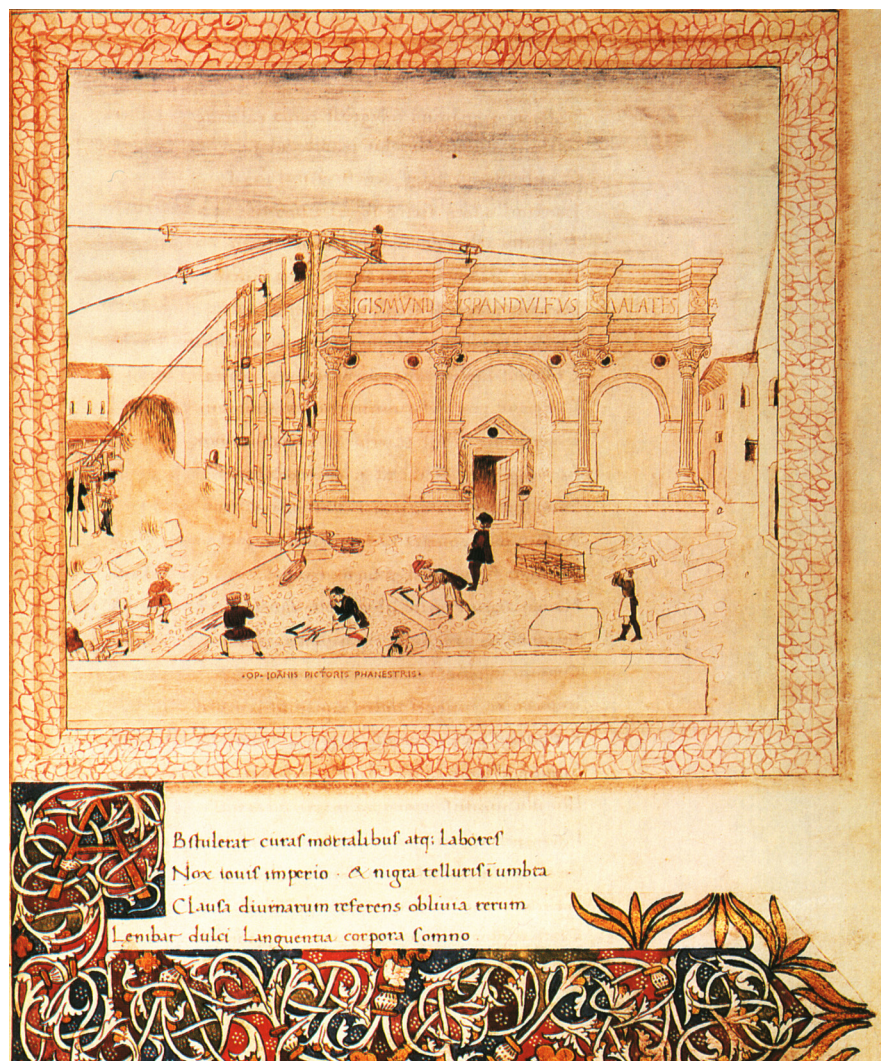 IGISMVND ISPANDVLFVS MALATES TA
·OP· IOĀNIS PICTORIS PHANESTRIS·
ABſtulerat curaſ mortalibuſ atq; laboreſ
Nox iouiſ imperio · & nigra telluriſ ī umbra
Clauſa diurnarum referens obliuia rerum
Lenibat dulci Languentia corpora ſomno